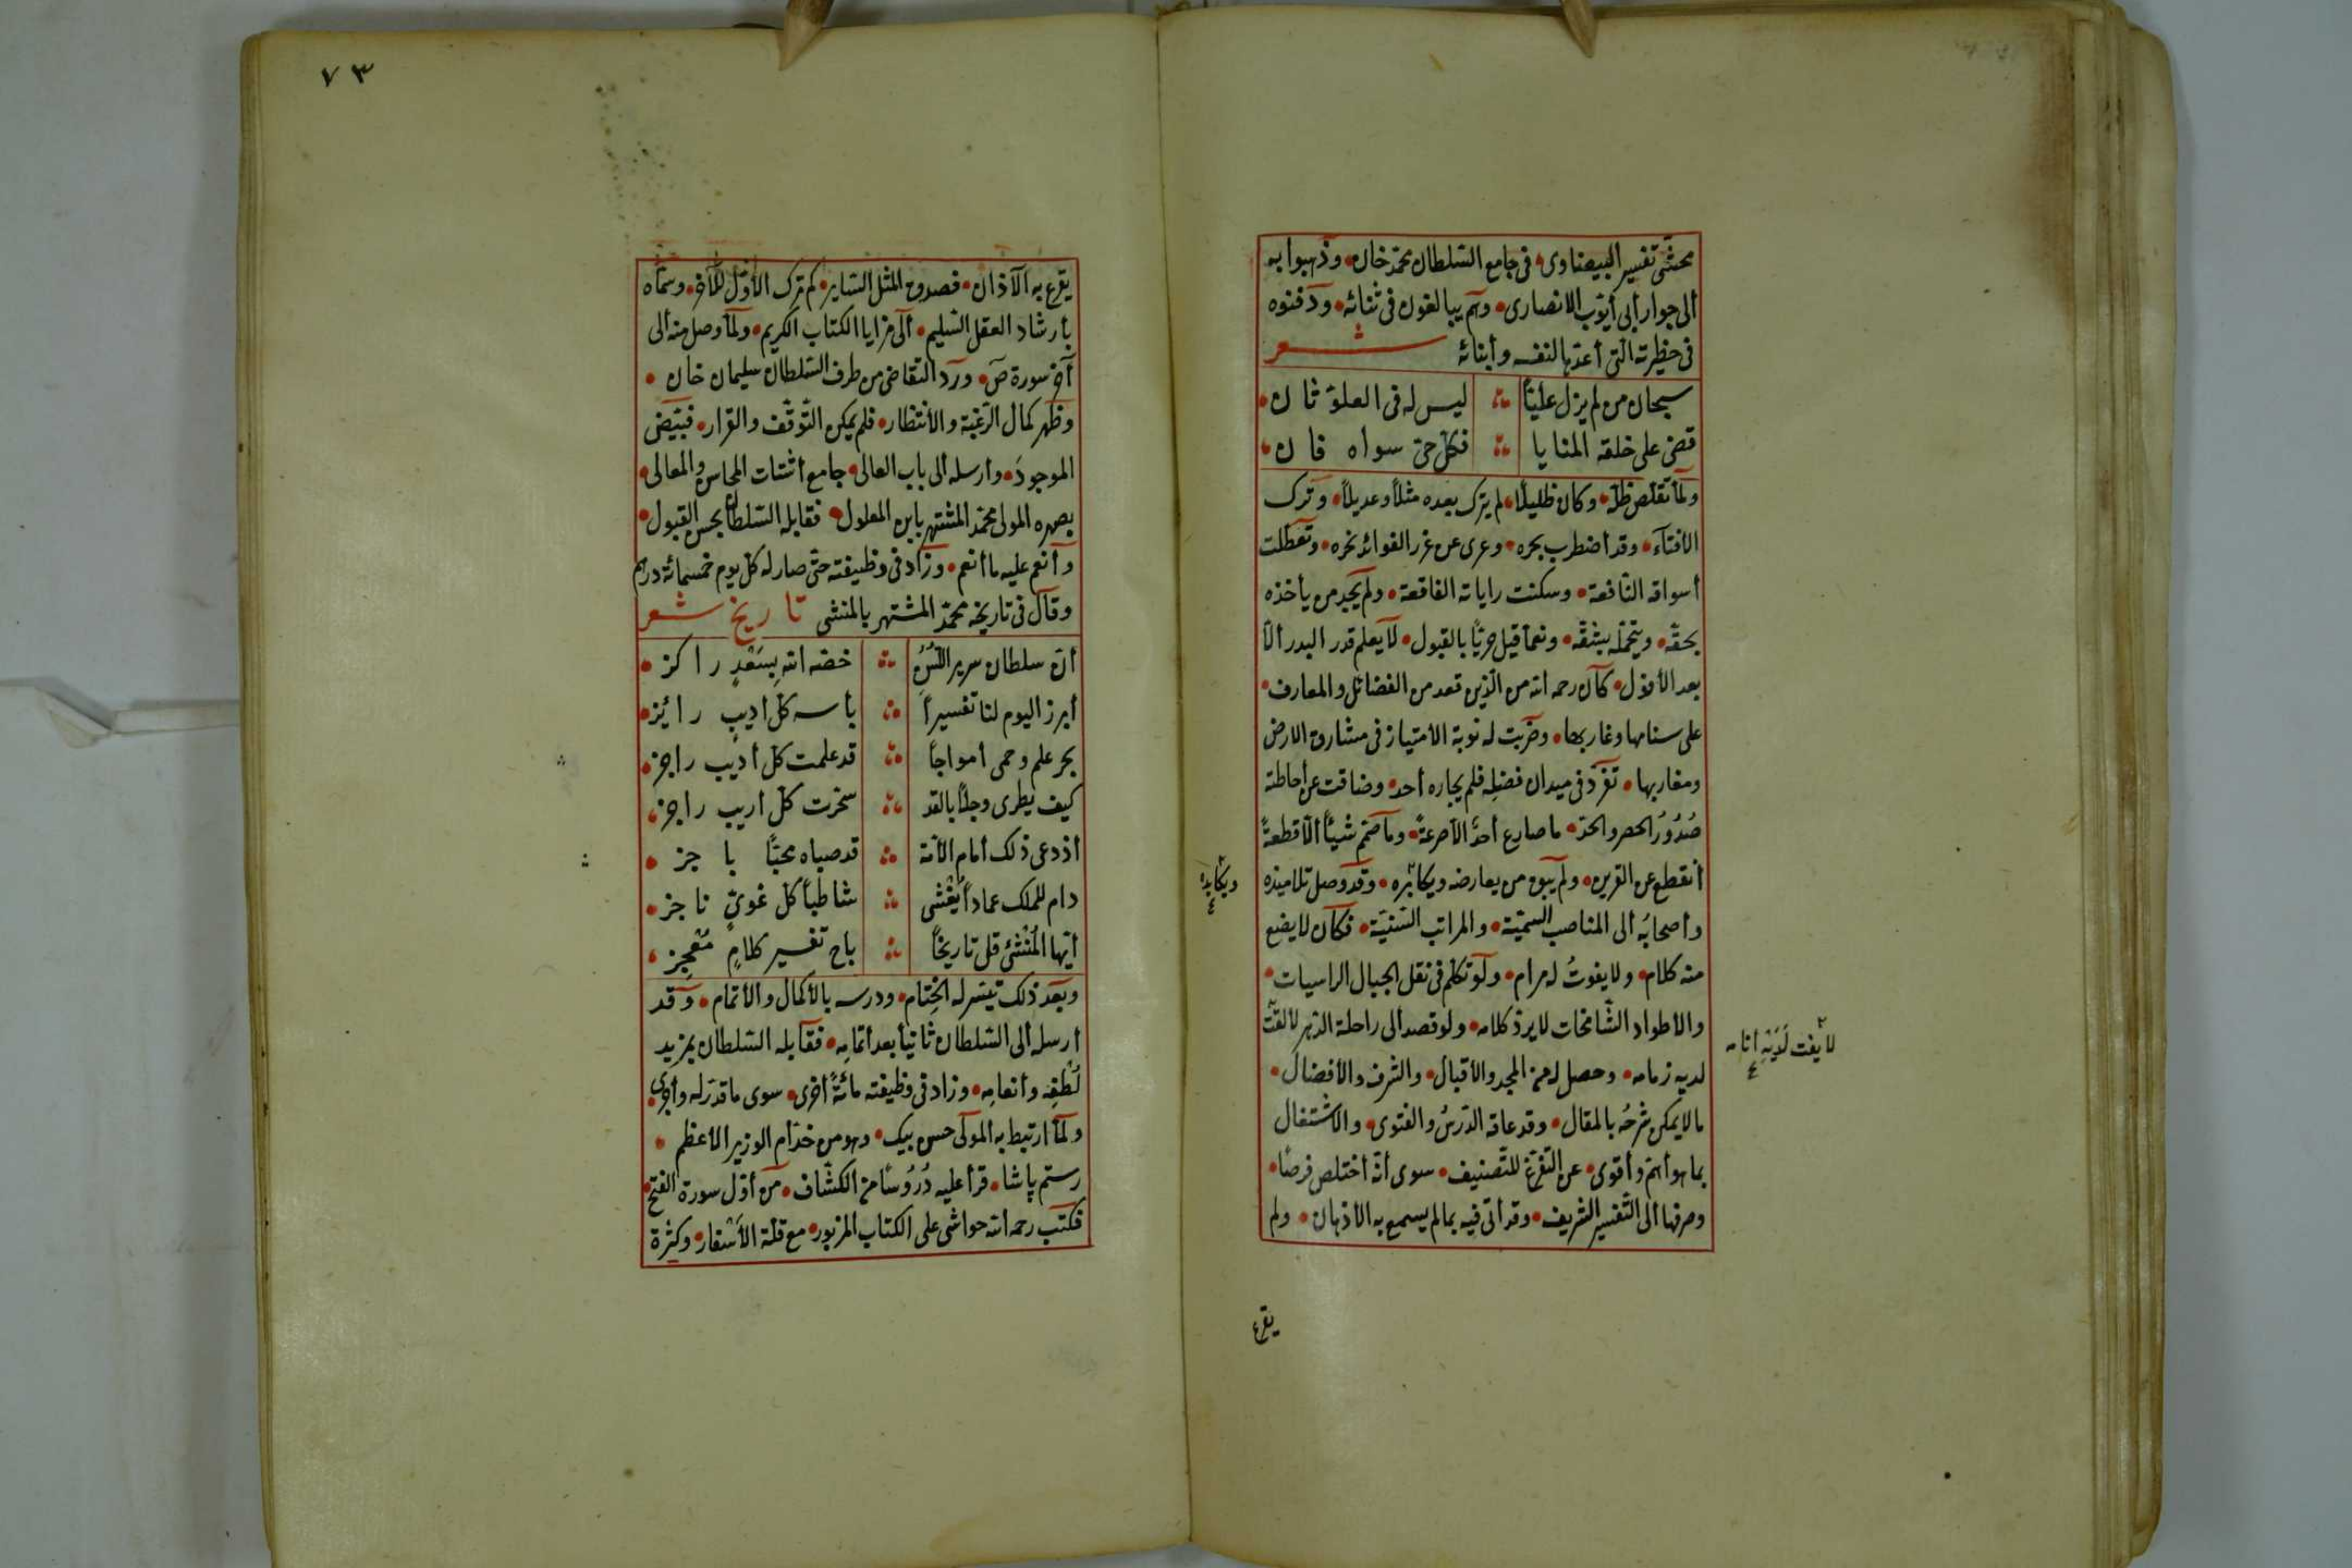 محشّى تفسير البيضاوى • فى جامع السّلطان محمّد خان • وذهبوا به
الى جوار أبى أيّوب الانصارى • وهم يبالغون فى ثنائه • ودفنوه
فى حظيرته الّتى أعدّها لنفسه وأبنائه شعر
سبحان من لم يزل عليّاً ليس له فى العلوّ ثان •
قضى على خلقه المنايا فكلّ حىّ سواه فان •
ولمّا تقلّص ظلّه • وكان ظليلاً • لم يترك بعده مثلاً وعديلاً • وترك
الافتآء • وقد اضطرب بحره • وعرى عن غرر الفوائد نحره • وتعطّلت
أسواقه النّافعة • وسكنت راياته الفاقعة • ولم يجد من يأخذه
بحقّه • ويتحمّله بشقّه • ونعما قيل حريّا بالقبول • لا يعلم قدر البدر الاّ
بعد الأفول • كان رحمه الله من الّذين قعد من الفضائل والمعارف •
على سنامها وغاربها • وضربت له نوبة الامتياز فى مشارق الارض
ومغاربها • تفرّد فى ميدان فضله فلم يجاره أحد • وضاقت عن أحاطته
صُدُورُ الحصر والحدّ • ما صارع أحدًا الاّ صرعهً • وما صمّم شيئاً الاّ قطعهً
أنقطع عن القرين • ولم يبق من يعارضه ويكاثره • وقد وصل تلاميذه
ويكابده
وأصحابُه ألى المناصب السميّة • والمراتب السّنيّة • فكان لا يضيع
منه كلام • ولا يفوتُ له مرام • ولو تكلّم فى نقل الجبال الراسيات •
والاطواد الشّامخات لا يردّ كلامه • ولو قصد ألى راحلة الدّهر لالقت
لا يفت لَدَيْهِ أنامه
لديه زمامه • وحصل له من المجد والأقبال • والشرف والأفضال •
ما لا يمكن شرحُه بالمقال • وقد عاقه الدّرسُ والفتوى • والاشتغال
بما هو أهمّ وأقوى • عن التفرّغ للتّصنيف • سوى أنّه أختلص فرصًا •
وصرفها ألى التّفسير الشريف • وقد أتى فيه بما لم يسمع به الأذهان • ولم
يقرع
٧٣
يقرع به الآذان • فصدق المثل السّاير • كم ترك الأوّل للآخر • وسمّاه
بأرشاد العقل السّليم • ألى مزايا الكتاب الكريم • ولمّا وصل منه ألى
آخر سورة صَ • ورد التّقاضى من طرف السّلطان سليمان خان •
وظهر كمال الرّغبة والأنتظار • فلم يمكن التّوقّف والقرار • فبيّض
الموجود • وأرسله ألى باب العالى • جامع أشتات المحاسن والمعالى •
بصهره المولى محمّد المشتهر بابن المعلول • فقابله السّلطان بحسن القبول •
وأنعم عليه ما أنعم • وزاد فى وظيفته حتّى صار له كلّ يوم خمسمائة درهم
وقال فى تاريخه محمّد المشتهر بالمنشى تاريخ شعر
أنّ سلطان سرير السُّنَنِ خصّه الله بِسَعْدٍ راكز •
أبرز اليوم لنا تفسيراً باسه كلّ اديبٍ رائز •
بحر علم وحمى أمواجاً قد علمت كلّ أديب راجز •
كيف يطرى وجلّا بالقد سخرت كلّ اريب راجز •
أذ دعى ذلك أمام الأمّة قد صباه محبّاً باجز •
دام للملك عماداً يغْشى شاطباً كلّ غوىٍّ ناجز •
أيّها المُنْشئ قل تاريخاً باح تفسير كلامٍ مُعجِز •
وبعد ذلك تيسّر له الختام • ودرسه بالأكمال والأتمام • وقد
أرسله ألى السّلطان ثانياً بعد أتمامِه • فقابله السّلطان بمزيد
لُطْفِه وأنعامِه • وزاد فى وظيفته مائةً أخرى • سوى ما قدّر له وأجرى •
ولمّا ارتبط به المولى حسن بيك • وهو من خدّام الوزير الأعظم •
رستم پاشا • قرأ عليه دُرُوسًا من الكشّاف • من أوّل سورة الفتح •
فكتب رحمه الله حواشى على الكتاب المزبور • مع قلّة الأسفار • وكثرة